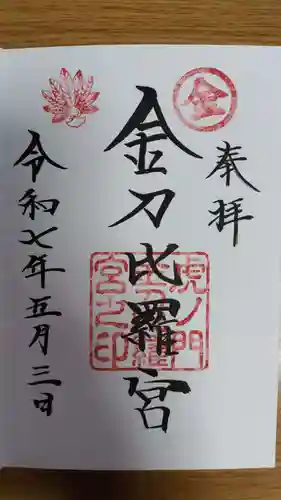 奉拝
金
金刀比羅宮
虎ノ門
金刀比羅
宮之印
令和七年五月三日